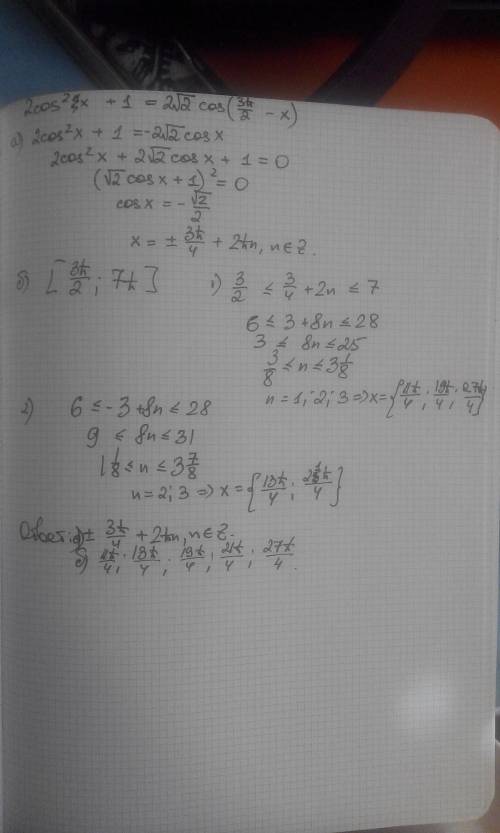 2cos²x + 1 = 2√2 cos(3π/2 - x)
а) 2cos²x + 1 = -2√2 cosx
2cos²x + 2√2 cosx + 1 = 0
(√2 cosx + 1)² = 0
cosx = - √2/2
x = ± 3π/4 + 2πn, n∈Z.
б) [3π/2; 7π]
1) 3/2 ≤ 3/4 + 2n ≤ 7
6 ≤ 3 + 8n ≤ 28
3 ≤ 8n ≤ 25
3/8 ≤ n ≤ 3 1/8
n = 1; 2; 3 => x = {11π/4; 19π/4; 27π/4}
2) 6 ≤ -3 + 8n ≤ 28
9 ≤ 8n ≤ 31
1 1/8 ≤ n ≤ 3 7/8
n = 2; 3 => x = {13π/4; 21π/4}
Ответ: а) ± 3π/4 + 2πn, n∈Z.
б) 11π/4; 13π/4; 19π/4; 21π/4; 27π/4.